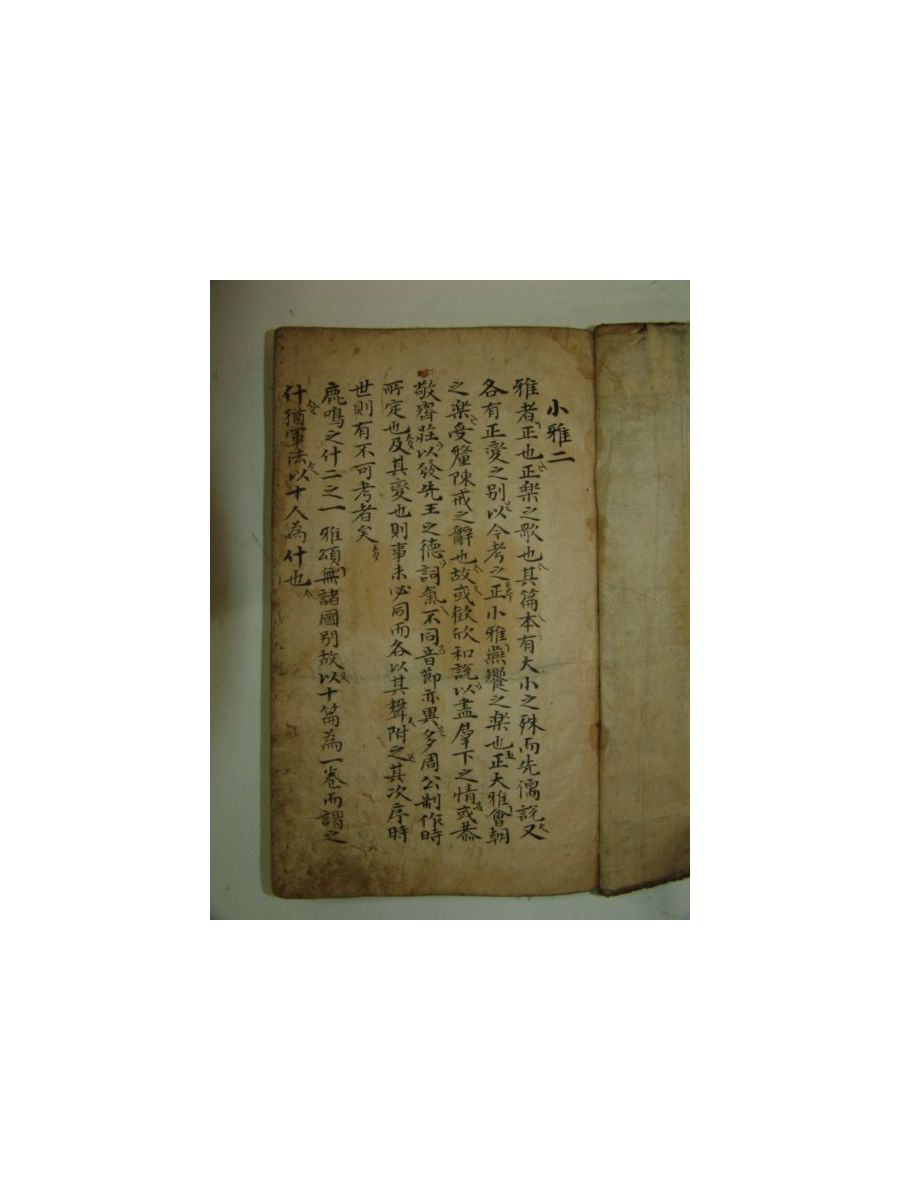 小雅二
雅者正也正楽之歌也其篇本有大小之殊而先儒説又
各有正変之别以今考之正小雅燕饗之楽也正大雅會朝
之楽受釐陳戒之辭也故或歡欣和説以盡羣下之情或恭
敬齊莊以發先王之德詞氣不同音節亦異多周公制作時
所定也及其變也則事未必同而各以其聲附之其次序時
世則有不可考者矣
鹿鳴之什二之一 雅頌無諸國别故以十篇為一卷而謂之
什猶軍法以十人為什也